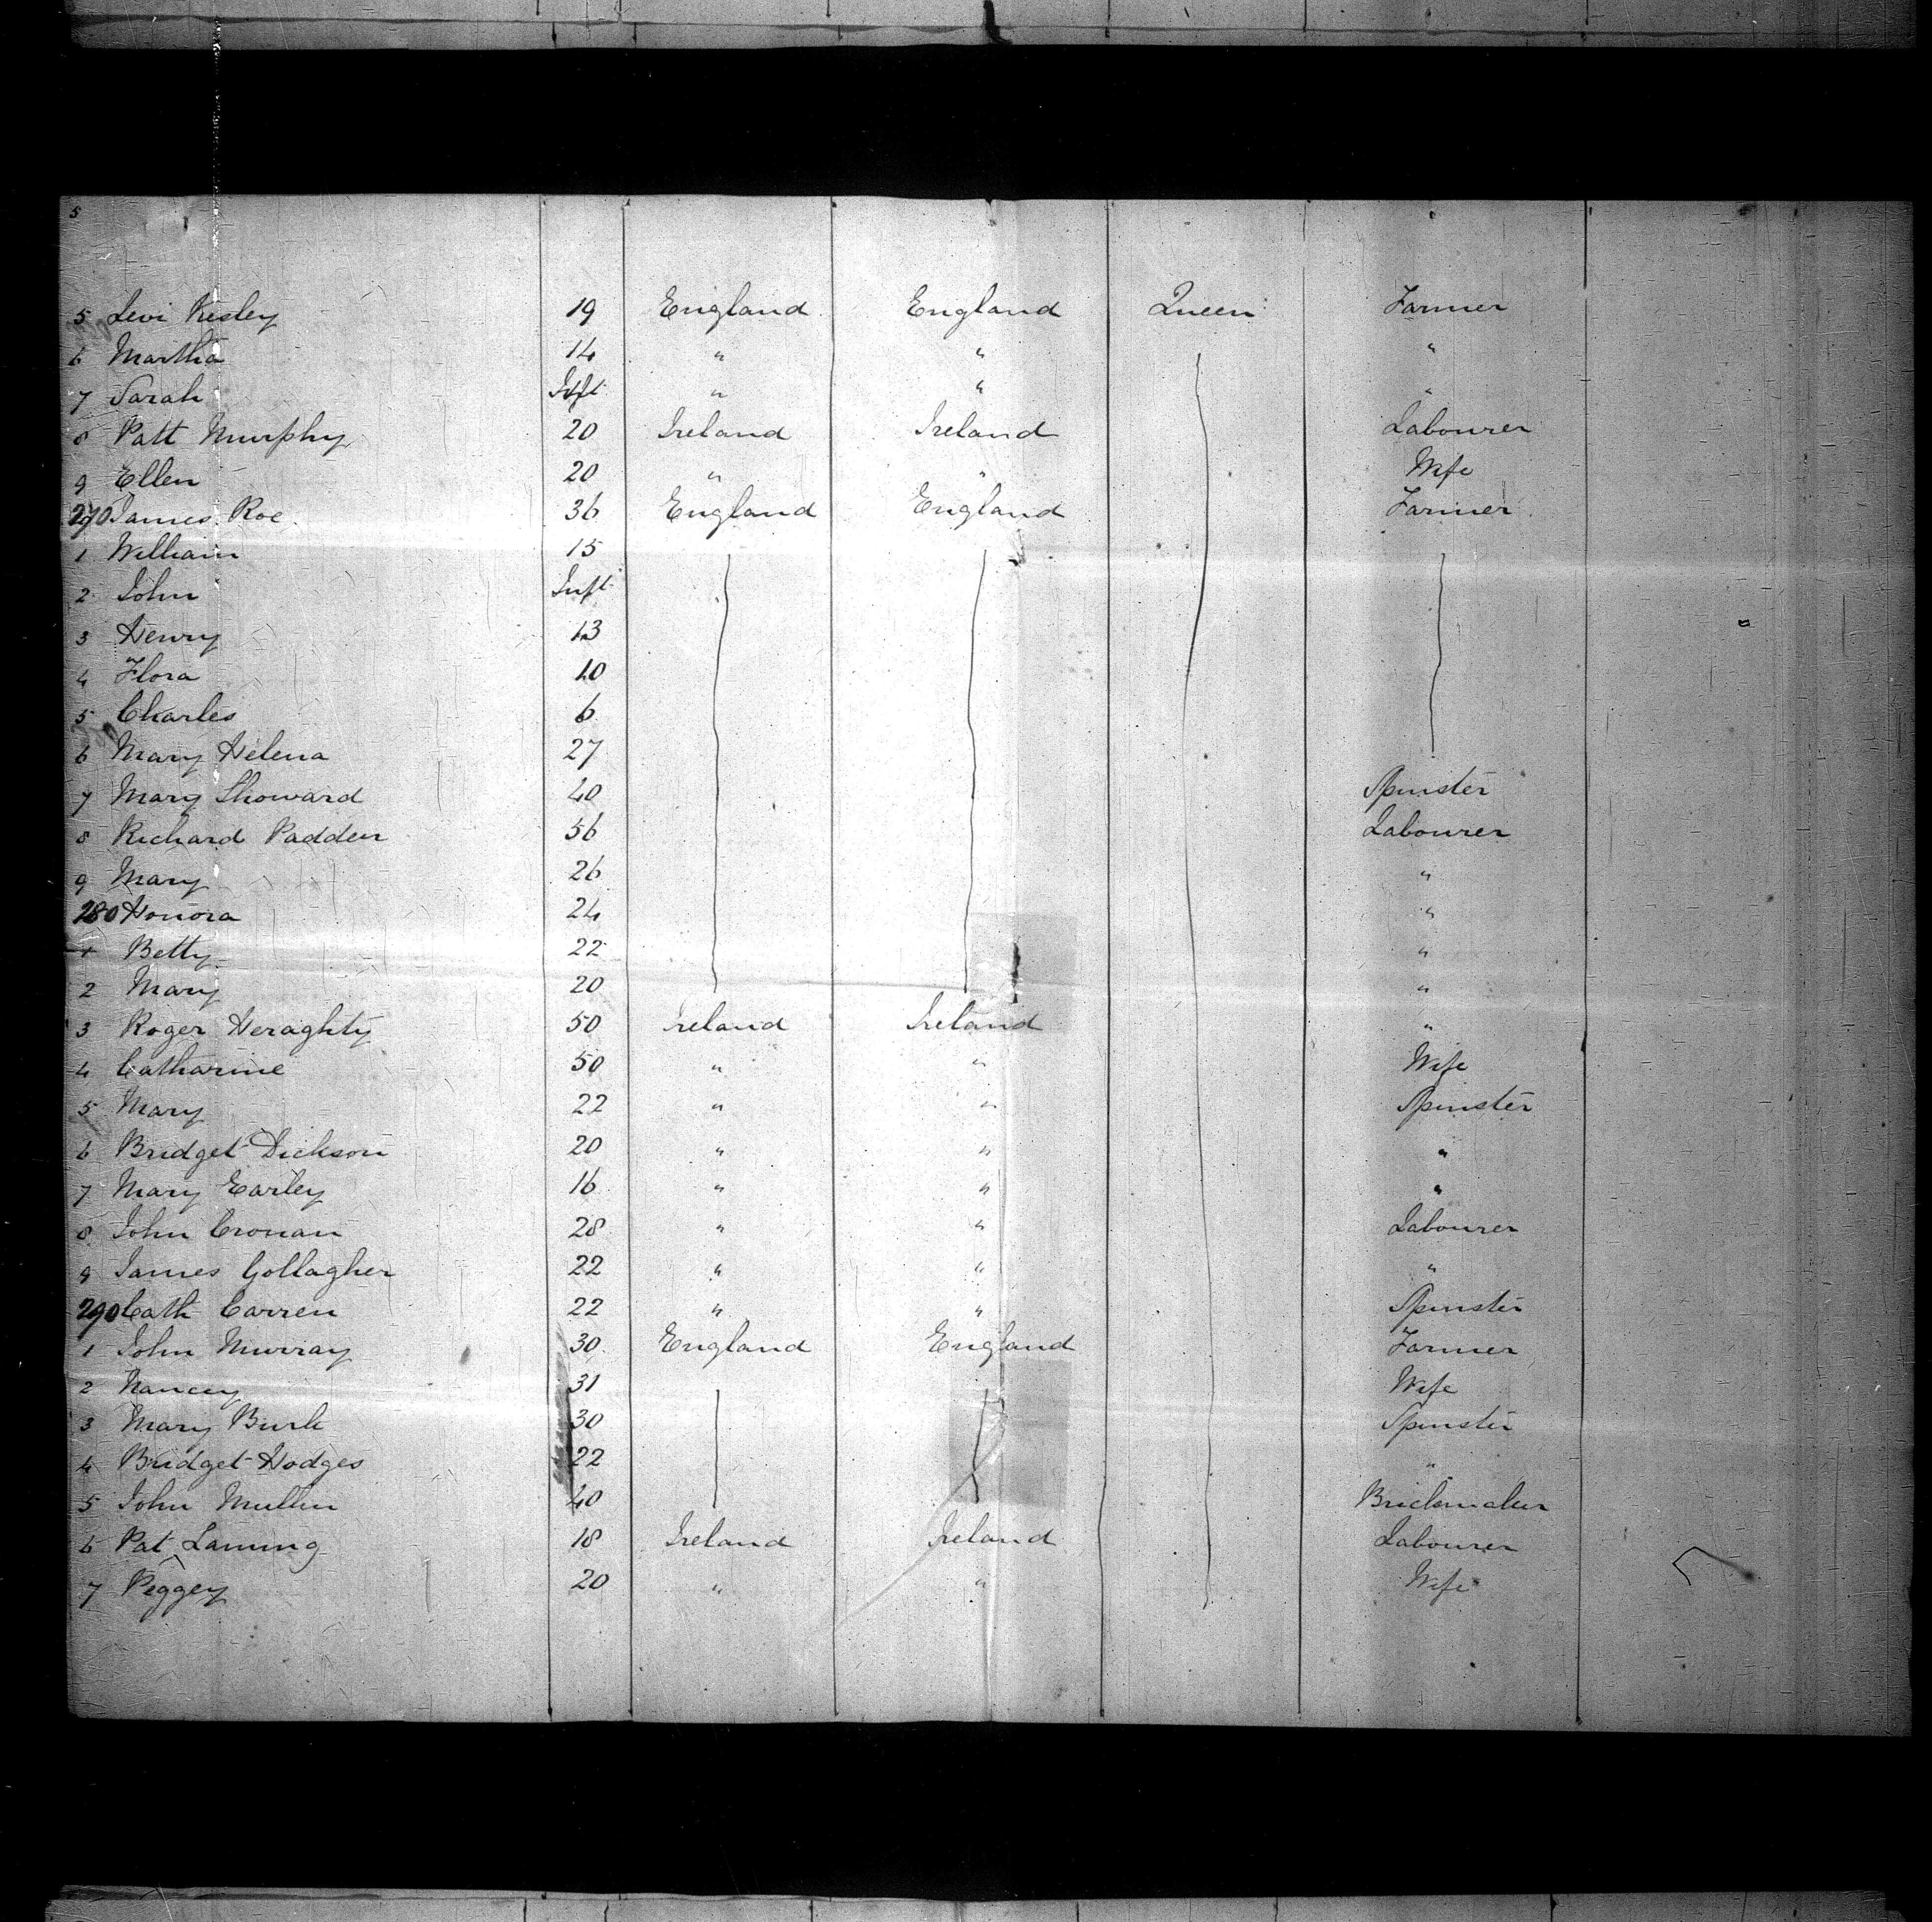 5
5 Levi Kesley 19 England England Queen Farmer
6 Martha 14 " " "
7 Sarah Inft " " "
8 Patt Murphy 20 Ireland Ireland Labourer
9 Ellen 20 " " Wife
270 James Roe 36 England England Farmer
1 William 15
2 John Inft
3 Henry 13
4 Flora 10
5 Charles 6
6 Mary Helena 27
7 Mary Showard 40 Spinster
8 Richard Padden 56 Labourer
9 Mary 26 "
280 Honora 24 "
1 Betty 22 "
2 Mary 20 "
3 Roger Heraghty 50 Ireland Ireland "
4 Catharine 50 " " Wife
5 Mary 22 " " Spinster
6 Bridget Dickson 20 " " "
7 Mary Earley 16 " " "
8 John Cronan 28 " " Labourer
9 James Gollagher 22 " " "
290 Cath Carren 22 " " Spinster
1 John Murray 30 England England Farmer
2 Nancey 31 Wife
3 Mary Burk 30 Spinster
4 Bridget Hodges 22 "
5 John Mullin 40 Brickmaker
6 Pat Laning 18 Ireland Ireland Labourer
7 Peggey 20 " " Wife